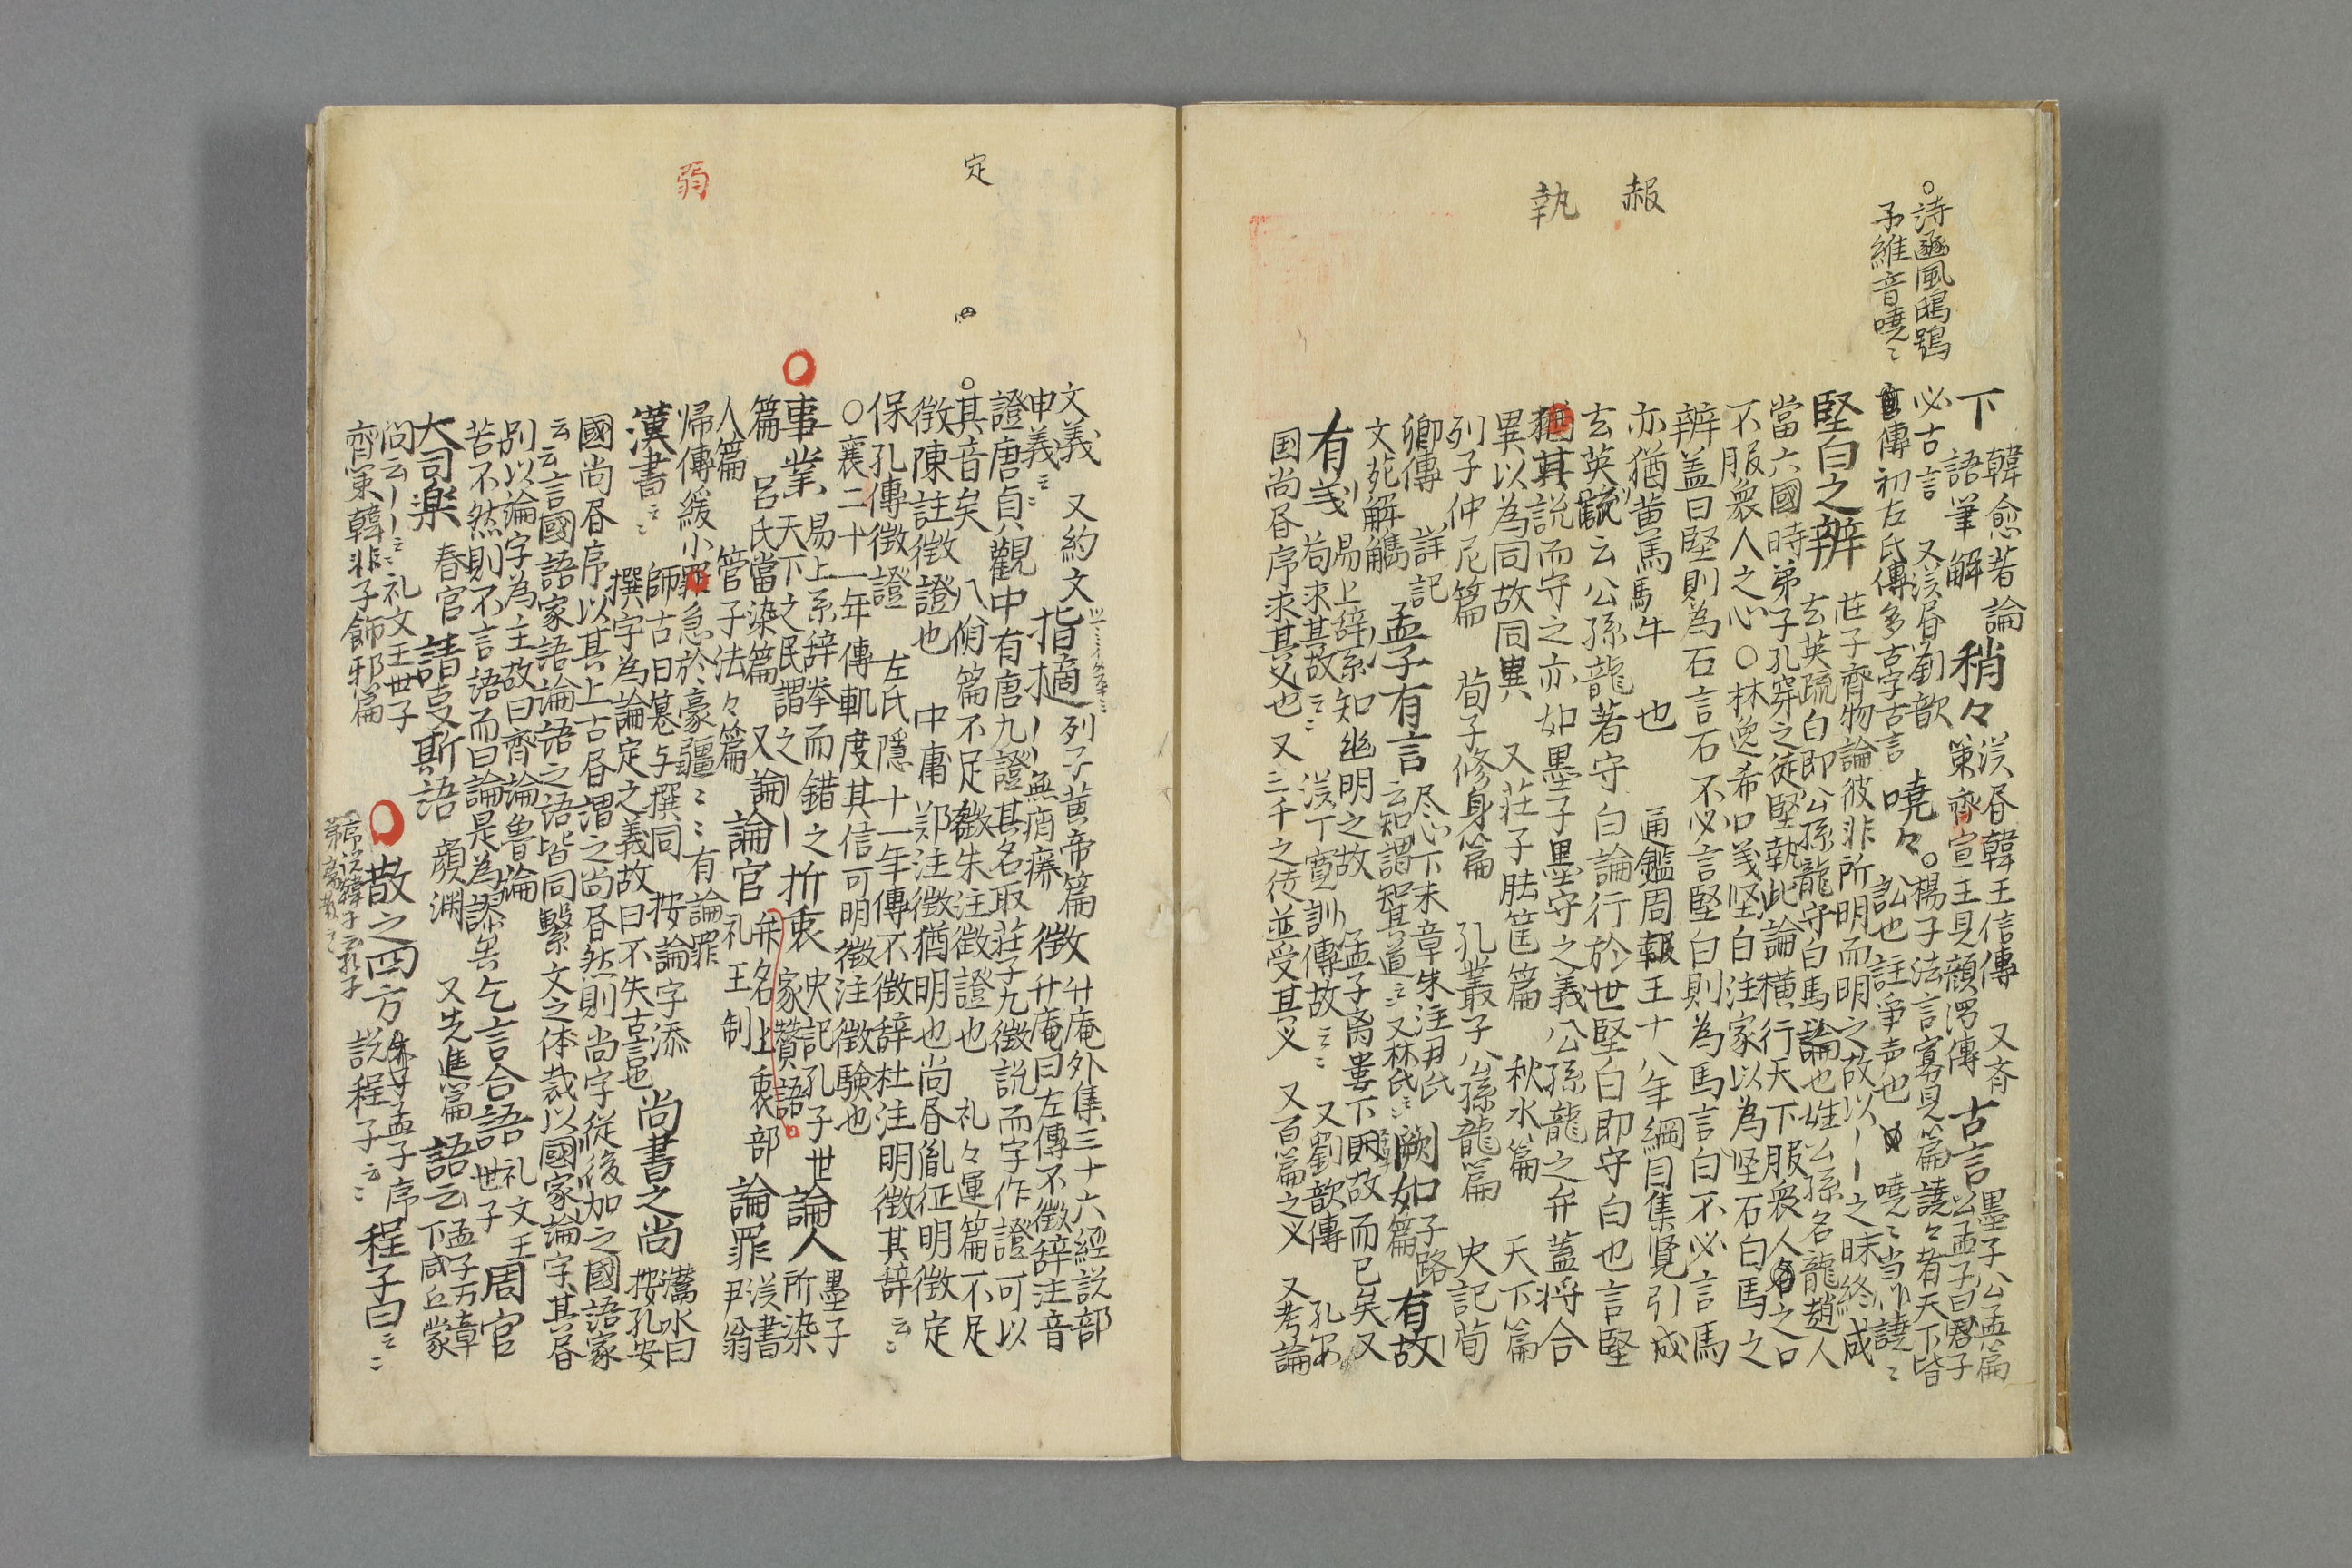 ○詩豳風鴟鴞
予維音嘵〻
赧
執
下 韓愈著論
語筆解 稍々 漢書韓王信傳 又斉
策齊宣王見顔斶傳 古言 墨子公孟篇
公孟子曰君子
必古言 又漢書劉歆
傳初左氏傳多古字古言 嘵々 ○楊子法言寡見篇譊々者天下皆
訟也註争声也 嘵〻当作譊〻
堅白之辨 荘子齊物論彼非所明而明之故以丨丨之昧終成
玄英疏白即公孫龍守白馬論也姓公孫名龍趙人
當六國時弟子孔穿之徒堅執此論横行天下服衆人之口
不服衆人之心○林逸希口義堅白注家以為堅石白馬之
辨盖曰堅則為石言石不必言堅白則為馬言白不必言馬
亦猶黄馬馬牛也 通鑑周赧王十八年綱目集覧引成
玄英疏云公孫龍著守白論行於世堅白即守白也言堅
猶其説而守之亦如墨子墨守之義公孫龍之弁蓋将合
異以為同故同異 又莊子胠篋篇 秋水篇 天下篇
列子仲尼篇 荀子修身篇 孔叢子公孫龍篇 史記荀
卿傳 詳記 孟子有言 尽心下末章朱注尹氏
云知謂智其道〻又林氏〻 闕如 子路篇 有故
文苑解觹
易上辞系知幽明之故 孟子离婁下則故而已矣又
有義 荀求其故〻 漢丁寛訓傳故〻 又劉歆傳 孔安
国尚書序求其义也又三千之徒並受其义 又百篇之义 又考論
定
弱
文義 又約文 指摘 列子黄帝篇 徴 升庵外集三十六經説部
申義〻 丨丨無痟癢 升庵曰左傳不徴辞注音
證唐貞觀中有唐九證其名取莊子九徴説而字作證可以
○其音矣 八佾篇不足徴朱注徴證也 礼々運篇不足
徴陳註徴證也 中庸郑注徴猶明也尚書胤征明徴定
保孔傳徴證 左氏隱十一年傳不徴辞杜注明徴其辞〻
○襄二十一年傳軌度其信可明徴注徴験也
事業 易上系辞挙而錯之
天下之民謂之丨丨 折衷 史記孔子世
家贊語 論人 墨子
所染
篇 呂氏當染篇 又論 弁名上衷部 漢書
人篇 管子法々篇 論官 礼王制 論罪 尹翁
帰傳緩小罪急於豪彊〻 有論罪
漢書〻 師古曰㬥与撰同 按論字添
撰字為論定之義故曰不失古言也 尚書之尚 灊水曰
按孔安
國尚書序以其上古書謂之尚書然則尚字従後加之國語家
云云言國語家語論語之語皆同繋文之体裁以國家論字其書
別以論字為主故曰齊論魯論
苦不然則不言語而曰論是為謬矣 乞言合語 礼文王
世子 周官
大司楽 春官 請事斯語 顔渊 又先進篇 語云 孟子万章
下咸丘蒙
問云丨丨〻礼文王世子
齊策韓非子飾邪篇 散之四方 朱子孟子序
説程子〻 程子曰〻